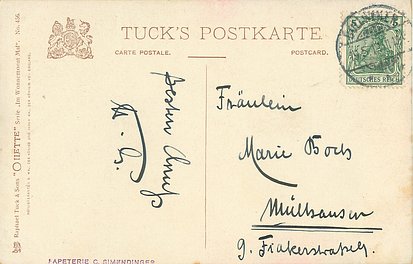 TUCK'S POSTKARTE.
CARTE POSTALE.
POSTCARD.
DEUTSCHES REICH
Besten Gruß
Fräulein
Marie Boch
Mülhausen
9. Finkerstraße
Raphael Tuck & Sons' "OILETTE" Serie „Im Wonnemonat Mai" No. 456.
PAPETERIE C. SIMENDINGER